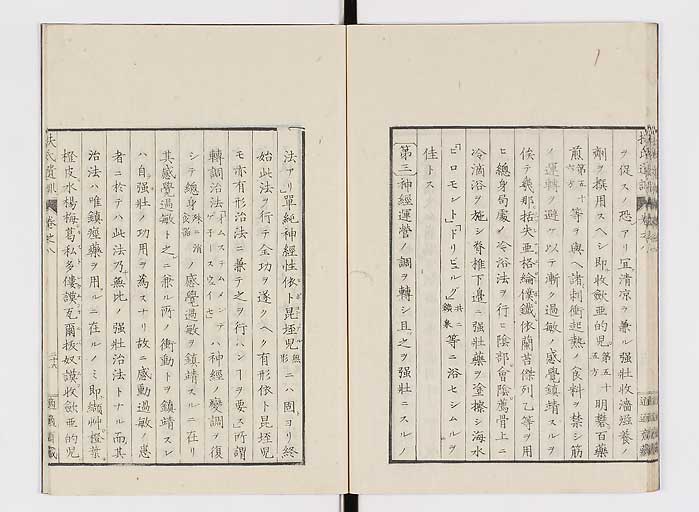 ヲ促スノ恐アリ宜清凉ヲ兼ル强壮收濇滋養ノ
劑ヲ撰用スヘシ即收斂亜的児第五十五方明礬百藥
煎第五十六方等ヲ與ヘ諸刺衝起熱ノ食料ヲ禁シ筋
ノ運轉ヲ避ケ以テ漸ク過敏ノ感覺鎭靖スルヲ
俟テ幾那括失亜格綸僕鐵依蘭苔傑列乙等ヲ用
ヒ總身局處ノ冷浴法ヲ行ヒ陰部會陰薦骨上ニ
冷滴浴ヲ施シ脊椎下邊ニ强壮藥ヲ塗擦シ海水
「ヒロモント」「ドリビュルグ」共ニ鑛泉等ニ浴セシムルヲ
佳トス
第三神經運營ノ調ヲ轉シ且之ヲ强壮ニスルノ
法アリ單純神經性依卜昆垤児無形ニハ固ヨリ終
始此法ヲ行テ全功ヲ遂クヘク有形依卜昆垤児
モ亦有形治法ニ兼テ之ヲ行ハンヿヲ要ス所謂
轉調治法ハ神經ノ變調ヲ復
シテ總身殊ニ消食器ノ感覺過敏ヲ鎭靖スルニ在リ
其感覺過敏ト之ニ兼ル所ノ衝動トヲ鎭靖スレ
ハ自强壮ノ功用ヲ為スナリ故ニ感動過敏ノ患
者ニ於テハ此法乃無比ノ强壮治法トナル而其
治法ハ唯鎭痙藥ヲ用ルニ在ルノミ即纈艸橙葉
橙皮水楊梅葛私多僂謨瓦爾抜奴謨收斂亜的児
扶氏遺訓 卷之八
三十六